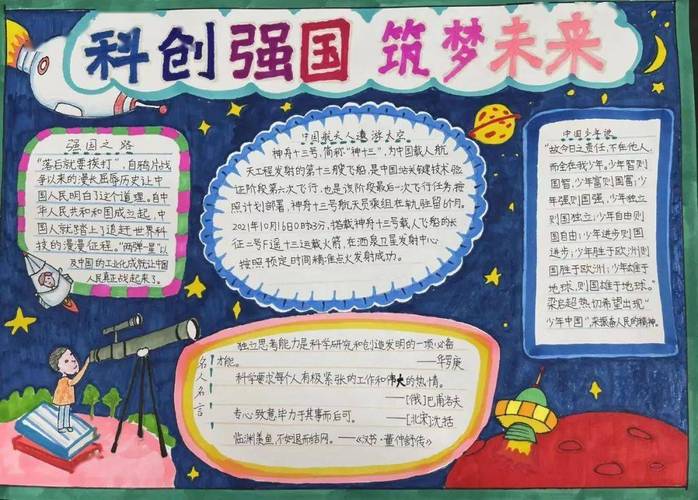 科创强国 筑梦未来
强国之路
“落后就要挨打”,自鸦片战
争以来的漫长屈辱历史让中
国人民明白了这个道理。自中
华人民共和国成立起,中
国人就踏上了追赶世界科
技的漫漫征程。“两弹一星”以
及中国的工业化成就让中国
人民真正战起来了。
中国航天人遨游太空
神舟十三号,简称“神十三”,为中国载人航
天工程发射的第十三艘飞船,是中国站关键技术验
证阶段第六次飞行,也是该阶段最后一次飞行任务,按
照计划部署,神舟十三号航天员乘组在轨驻留6个月。
2021年10月16日0时3分,搭载神舟十三号载人飞船的长
征二号F遥十三运载火箭,在酒泉卫星发射中心
按照预定时间精准点火发射成功。
中国少年说
“故今日之责任,不在他人,
而全在我少年。少年智则
国智,少年富则国富;少
年强则国强,少年独立
则国独立;少年自由则
国自由;少年进步则国
进步;少年胜于欧洲则
国胜于欧洲;少年雄于
地球,则国雄于地球。”
梁启超热切希望出现“
少年中国”,来振奋人民的精神。
名人名言
独立思考能力是科学研究和创造发明的一项必备
才能。 ——华罗庚
科学要求每个人有极紧张的工作和伟大的热情。
——[俄]巴甫洛夫
专心致意毕力于其事而后可。 ——[北宋]沈括
临渊羡鱼,不如退而结网。——《汉书·董仲舒传》